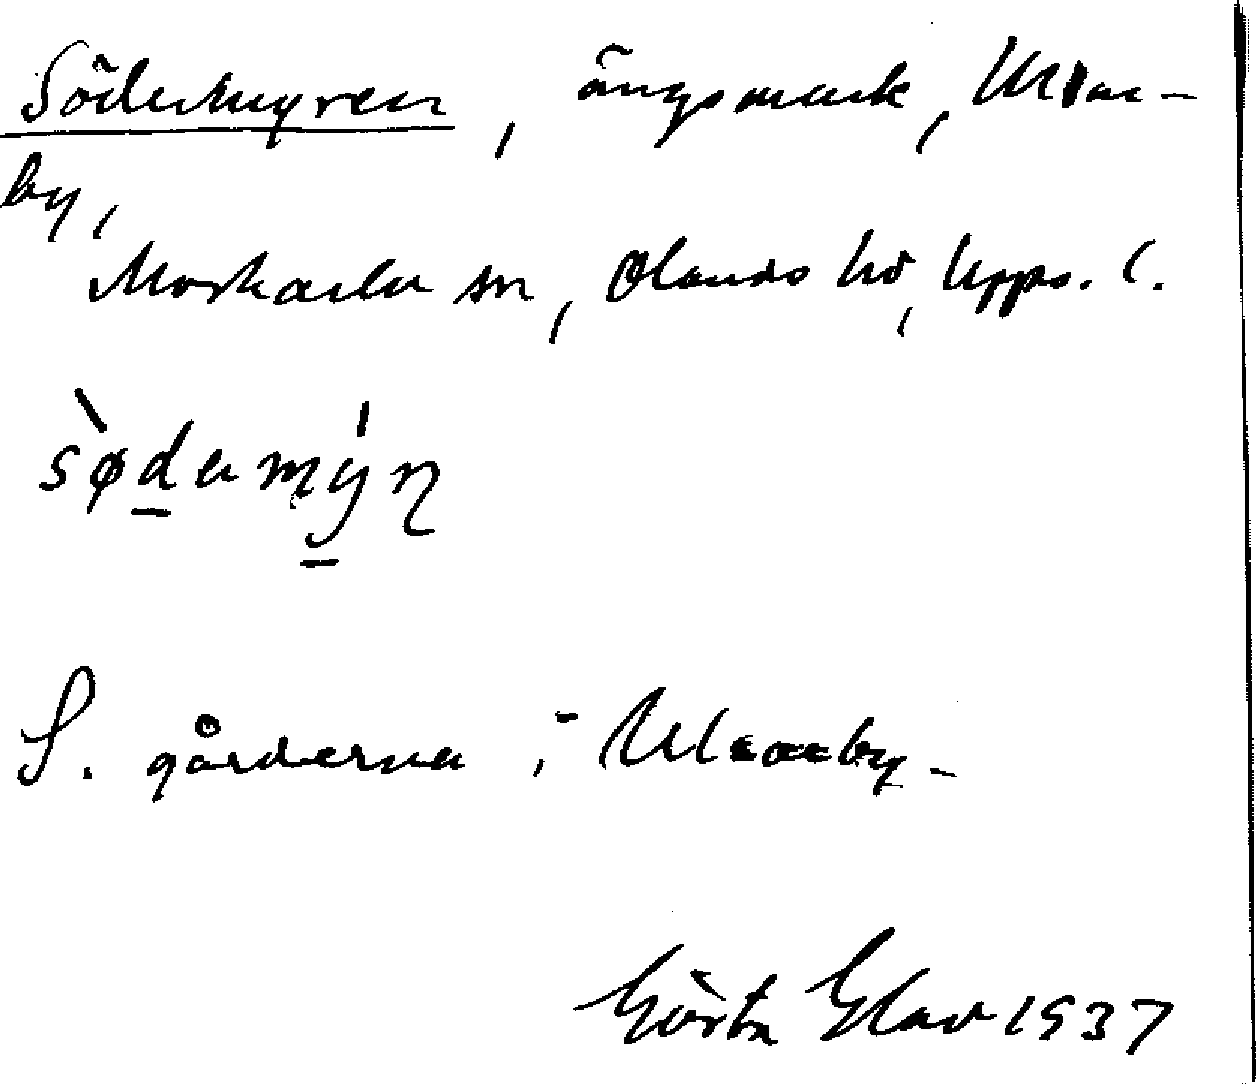 Södermyren, ängsmark, Ulvar-
by,
Morkarla sn, Olands hd, Upps. l.
sødermýn
S. gårderna i Ulvarby.
Gösta Elav 1937